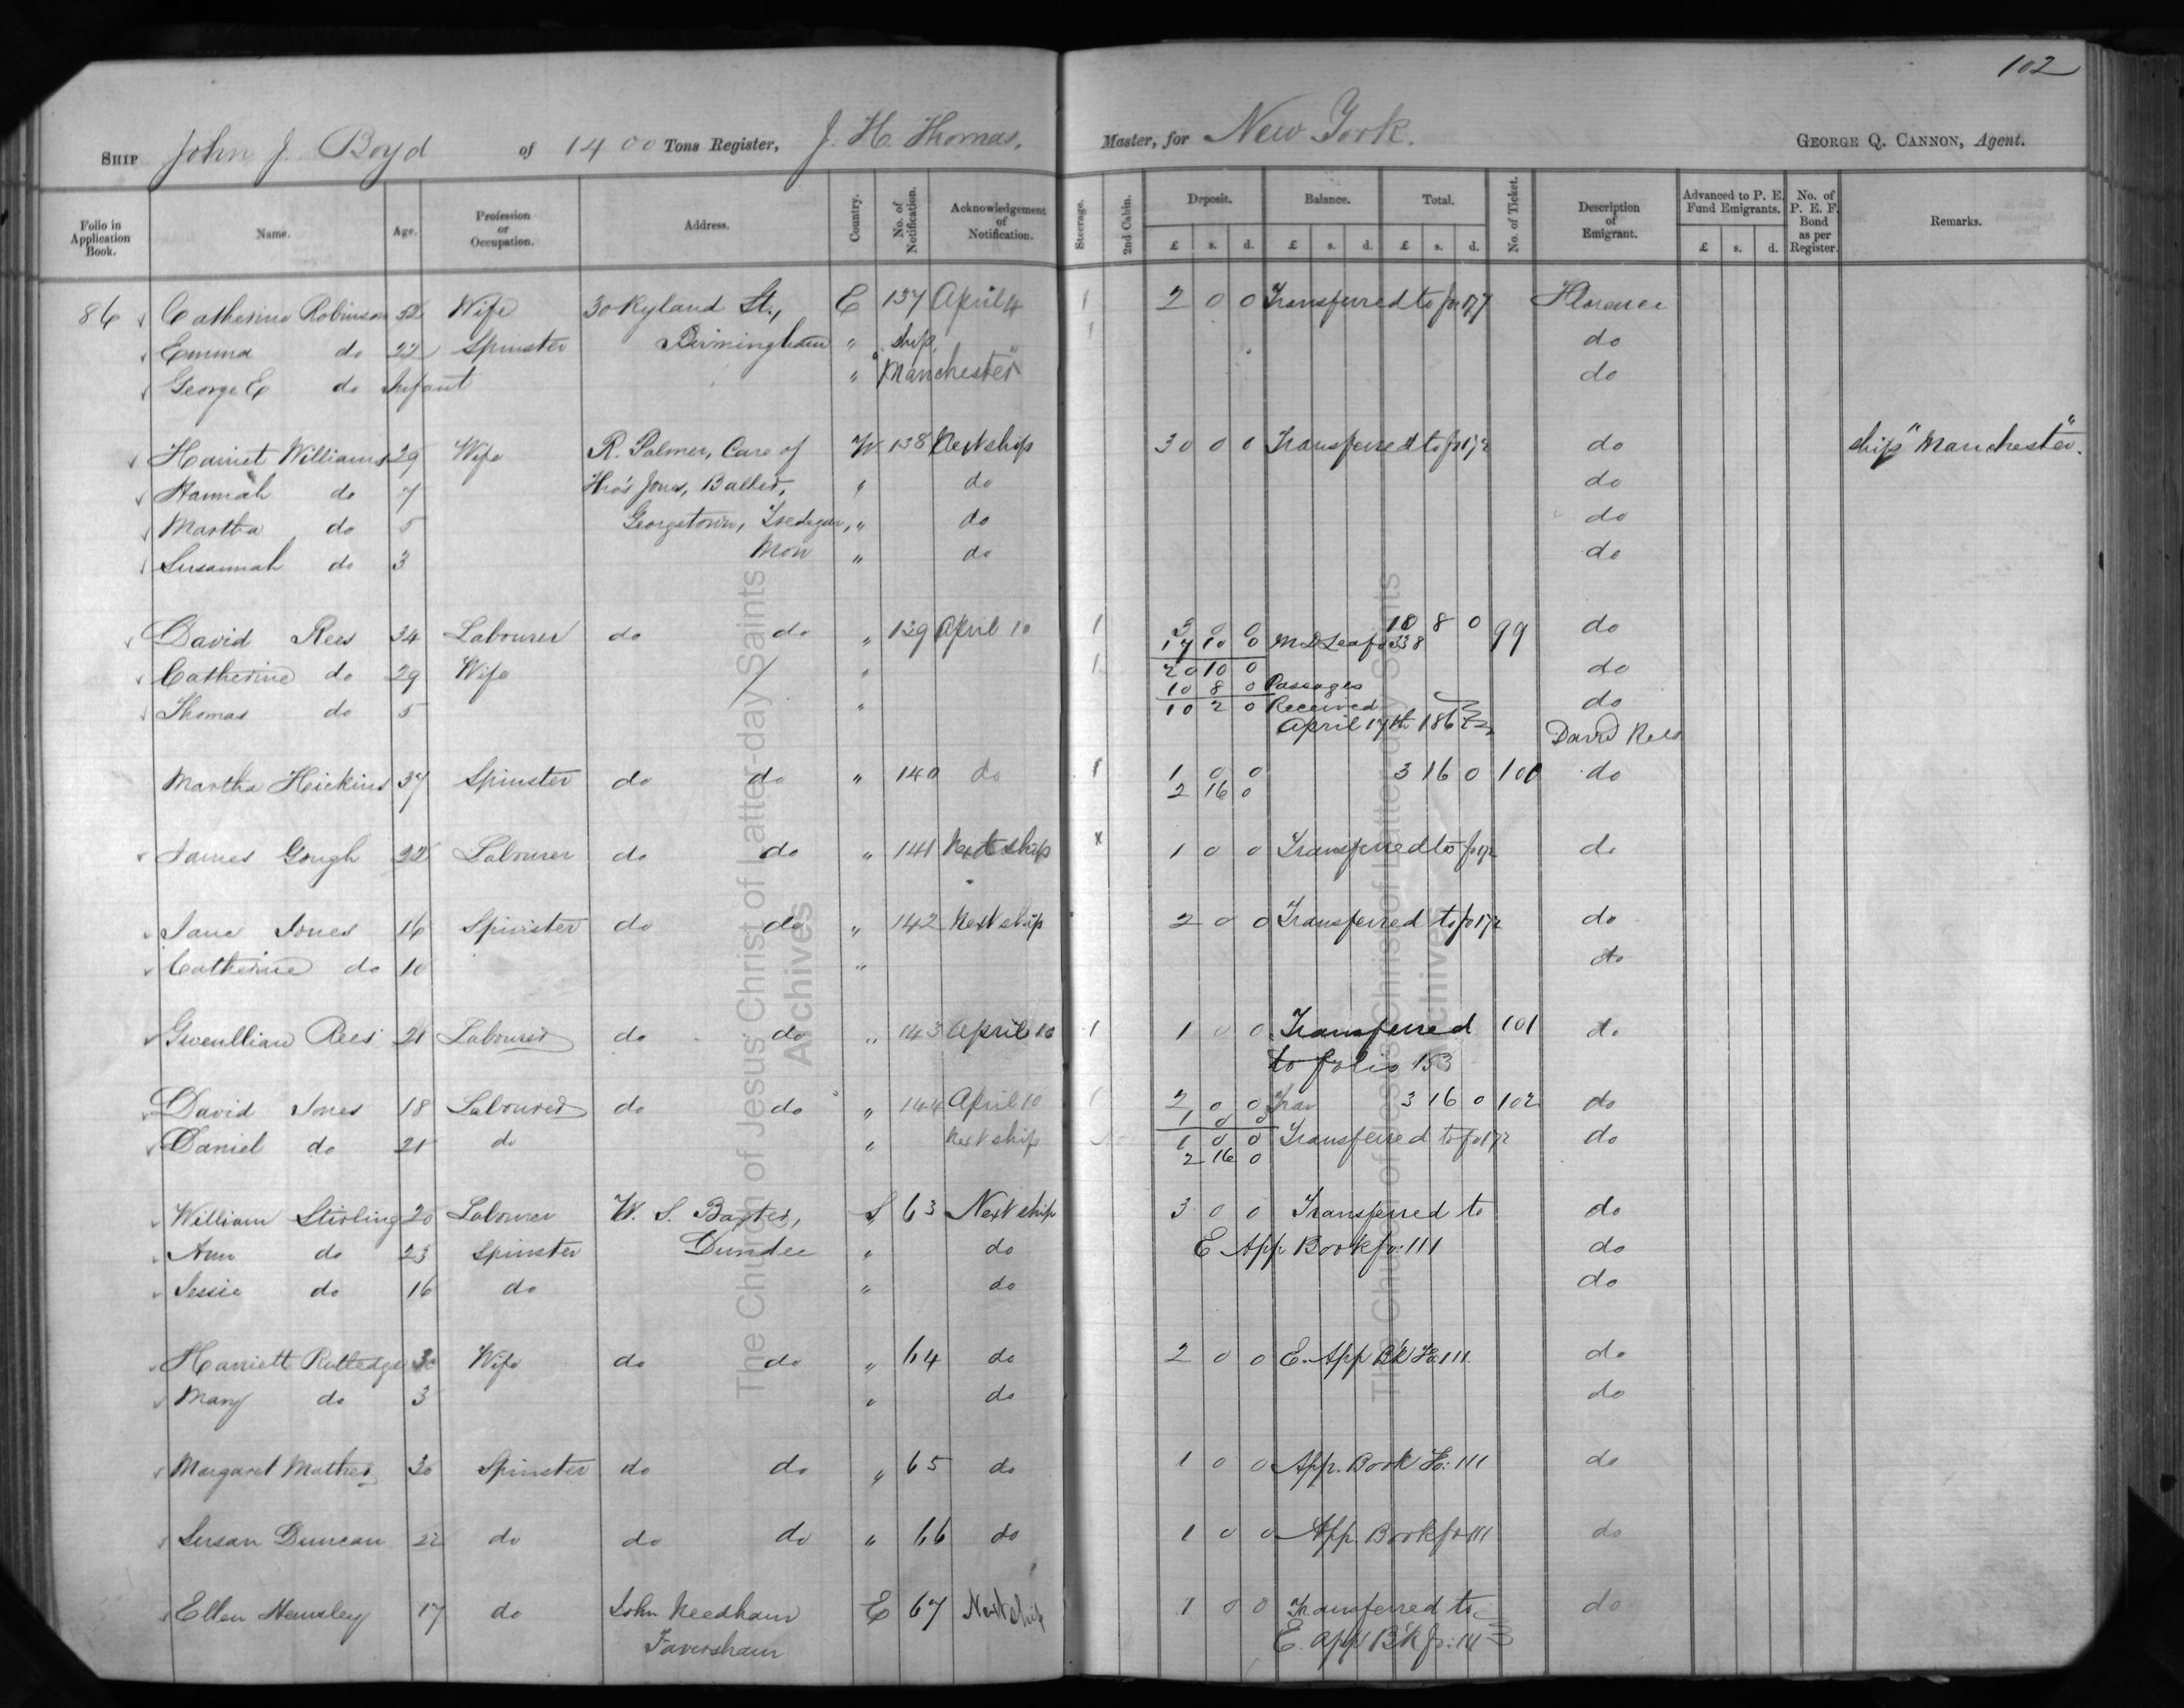 102
SHIP John J. Boyd of 1400 Tons Register, J. H. Thomas, Master, for New York. GEORGE Q. CANNON, Agent.
Folio in Application Book. Name. Age. Profession or Occupation. Address. Country. No. of Notification. Acknowledgement of Notification. Steerage. 2nd Cabin. Deposit. £ s. d. Balance. £ s. d. Total. £ s. d. No. of Ticket. Description of Emigrant. Advanced to P. E. Fund Emigrants. £ s. d. No. of P. E. F. Bond as per Register. Remarks.
86 Catherine Robinson 32 Wife 30 Ryland St., E 137 April 4 1 2 0 0 Transferred to fo 177 Florence
Emma do 22 Spinster Birmingham " ship 1 do
George E do Infant " "Manchester" do
Harriet Williams 29 Wife R. Palmer, Care of W. 138 Next ship 30 0 0 Transferred to fo 172 do ship "Manchester".
Hannah do 7 Tho's Jones, Baker, " do do
Martha do 5 Georgetown, Tredegar, " do do
Susannah do 3 Mon " do do
David Rees 34 Labourer do do " 139 April 10 1 3 0 0 10 8 0 99 do
17 10 0 M D Leaf 338
Catherine do 29 Wife " 1 20 10 0 do
10 8 0 Passages
Thomas do 5 " 10 2 0 Received do
April 17th 1862 David Rees
Martha Heickins 37 Spinster do do " 140 do 1 1 0 0 3 16 0 100 do
2 16 0
James Gough 22 Labourer do do " 141 Next ship x 1 0 0 Transferred to fo 172 do
Jane Jones 16 Spinster do do " 142 Next ship 2 0 0 Transferred to fo 172 do
Catherine do 10 " do
Gwenllian Rees 21 Labourer do do " 143 April 10 1 1 0 0 Transferred 101 do
to folio 153
David Jones 18 Labourer do do " 144 April 10 1 2 0 0 Trav 3 16 0 102 do
1 0 0
Daniel do 21 do " Next ship 1 0 0 Transferred to fo 172 do
2 16 0
William Stirling 20 Labourer W. S. Baxter, S 63 Next ship 3 0 0 Transferred to do
Ann do 23 Spinster Dundee " do E App. Book fo: 111 do
Jessie do 16 do " do do
Harriett Rutledge 30 Wife do do " 64 do 2 0 0 E. App B'k Fo: 111 do
Mary do 3 " do do
Margaret Mather 30 Spinster do do " 65 do 1 0 0 App. Book Fo: 111 do
Susan Duncan 22 do do do " 66 do 1 0 0 App. Book fo 111 do
Ellen Hemsley 17 do John Needham E 67 Next ship 1 0 0 Transferred to do
Faversham E. App B'k fo: 111
The Church of Jesus Christ of Latter-day Saints
Archives
The Church of Jesus Christ of Latter-day Saints
Archives